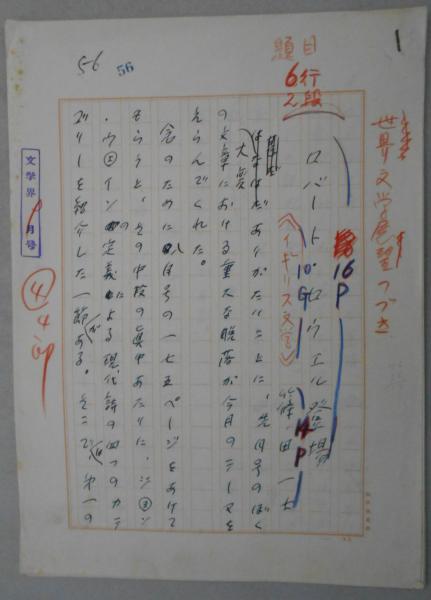 1
世界文学展望つづき
題目
6行
2段
5-6
56
16P
ロバート・ロウエル登場
10G
《イギリス文学》
14P
篠田一士
はなはだありがたいことに、先月号のぼく
の文章における重大な脱落が今月のテーマを
えらんでくれた。
念のために八月号の一七五ページをあけて
もらうと、その中段の真中あたりに、ジョン
・ウェインの定義による現代詩の四つのカテ
ゴリーを紹介した一節がある。そこで、第一の
文学界 月号
4